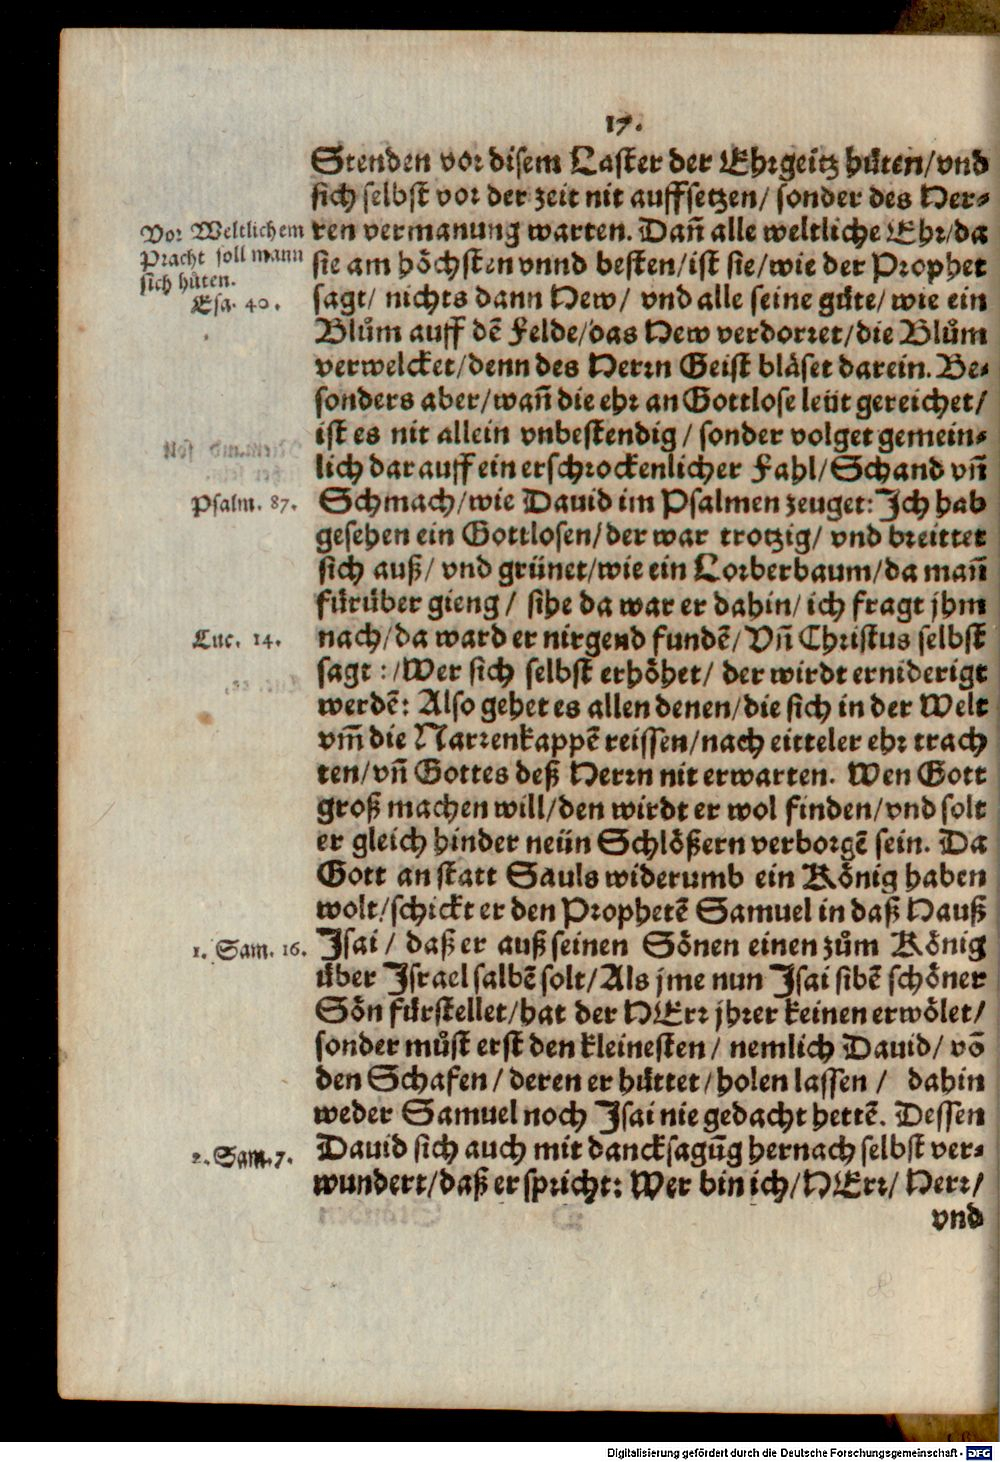 17.
Stenden vor disem Laster der Ehrgeitz hüten/vnd
sich selbst vor der zeit nit auffsetzen/ sonder des Her-
Vor Weltlichem
Pracht soll mann
sich hüten.
Esa. 40.
ren vermanung warten. Dañ alle weltliche Ehr/da
sie am höchsten vnnd besten/ist sie/wie der Prophet
sagt/ nichts dann Hew/ vnd alle seine güte/ wie ein
Blům auff dẽ Felde/das Hew verdorret/die Blům
verwelcket/denn des Herrn Geist bläset darein. Be-
sonders aber/wañ die ehr an Gottlose leüt gereichet/
ist es nit allein vnbestendig/ sonder volget gemein-
lich darauff ein erschrockenlicher Fahl/Schand vñ
Psalm. 87.
Schmach/wie Dauid im Psalmen zeuget: Ich hab
gesehen ein Gottlosen/der war trotzig/ vnd breittet
sich auß/ vnd grünet/wie ein Lorberbaum/da mañ
fürüber gieng/ sihe da war er dahin/ ich fragt jhm
Luc. 14.
nach/da ward er nirgend fundẽ/ Vñ Christus selbst
sagt:/Wer sich selbst erhöhet/ der wirdt erniderigt
werdẽ: Also gehet es allen denen/die sich in der Welt
vm̃ die Narrenkappẽ reissen/nach eitteler ehr trach
ten/vñ Gottes deß Herrn nit erwarten. Wen Gott
groß machen will/den wirdt er wol finden/vnd solt
er gleich hinder neün Schlößern verborgẽ sein. Da
Gott an statt Sauls widerumb ein König haben
wolt/schickt er den Prophetẽ Samuel in daß Hauß
1. Sam. 16.
Isai/ daß er auß seinen Sönen einen zům König
über Israel salbẽ solt/Als jme nun Isai sibẽ schöner
Sön fürstellet/hat der HErr jhrer keinen erwölet/
sonder můst erst den kleinesten/ nemlich Dauid/ võ
den Schafen/ deren er hüttet/holen lassen/ dahin
weder Samuel noch Isai nie gedacht hettẽ. Dessen
2. Sam. 7.
Dauid sich auch mit dancksagũg hernach selbst ver-
wundert/daß er spricht: Wer bin ich/HErr/ Herr/
vnd
Digitalisierung gefördert durch die Deutsche Forschungsgemeinschaft - DFG